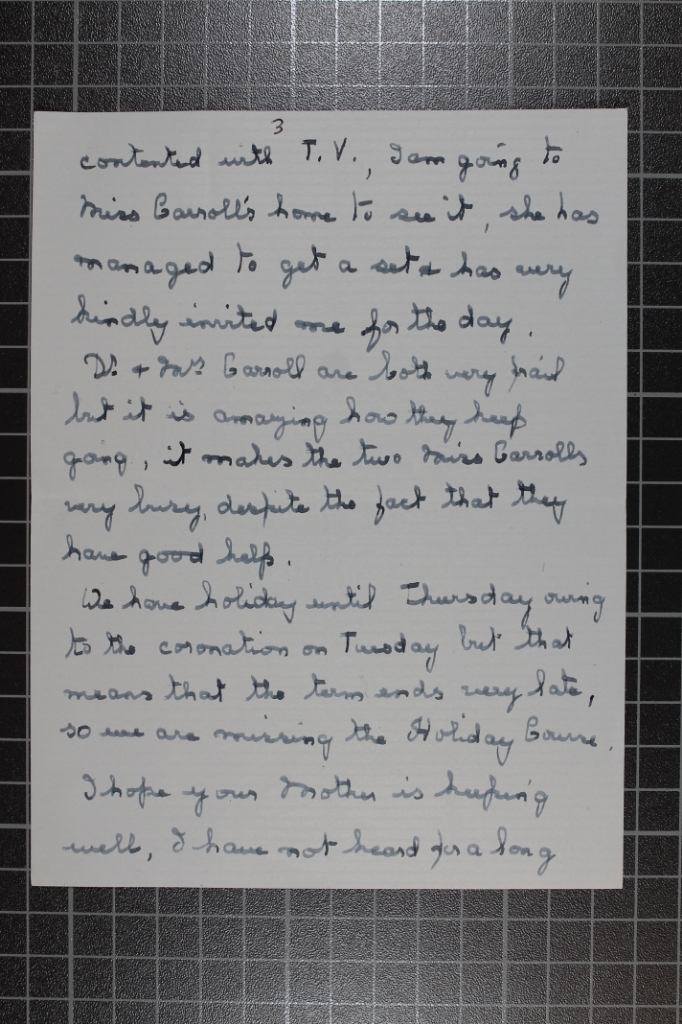 3
contented with T.V., I am going to
Miss Carroll's home to see it, she has
managed to get a set & has very
kindly invited me for the day.
Dr. & Mrs. Carroll are both very frail
but it is amazing how they keep
going, it makes the two Miss Carrolls
very busy, despite the fact that they
have good help.
We have holiday until Thursday owing
to the coronation on Tuesday but that
means that the term ends very late,
so we are missing the Holiday Course.
I hope your Mother is keeping
well, I have not heard for a long